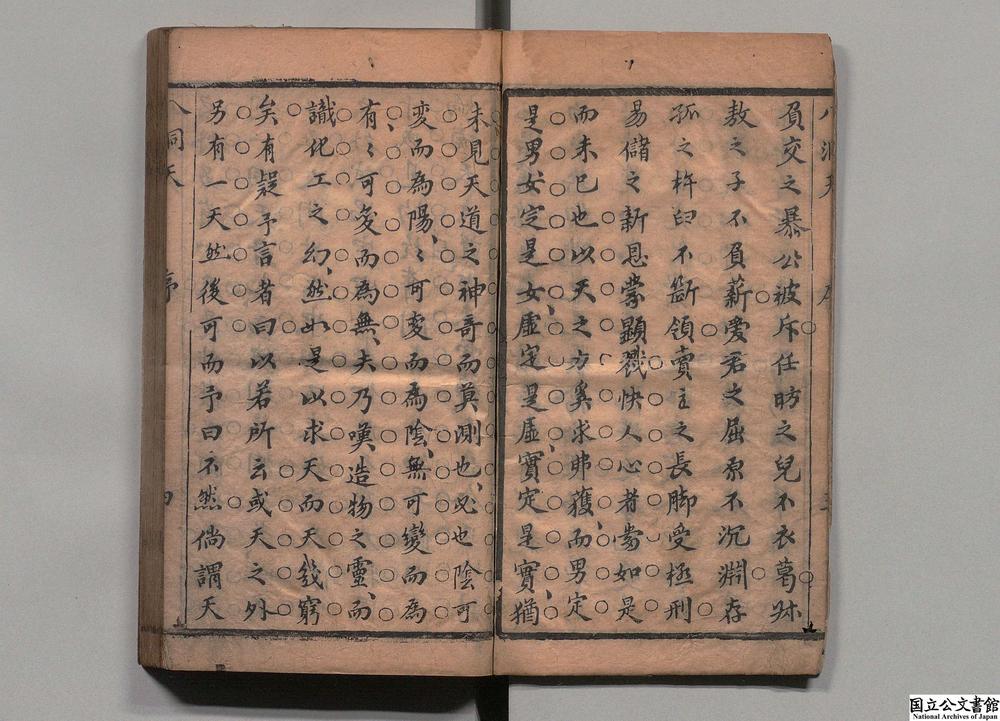 負交之暴公被斥任昉之兒不衣葛
敖之子不負薪愛君之屈原不沉淵存
孤之杵臼不斷領賣主之長脚受極刑
易儲之新恩蒙顯戮快人心者當如是
而未已也以天之方奚求弗獲而男定
是男女定是女虛定是虛實定是實猶
未見天道之神奇而莫測也必也陰可
変而為陽〻可変而為陰無可變而為
有〻可変而為無夫乃嘆造物之靈而
識化工之幻然如是以求天而天幾窮
矣有疑予言者曰以若所云或天之外
另有一天然後可而予曰不然倘謂天
八洞天
序
四
国立公文書館
National Archives of Japan